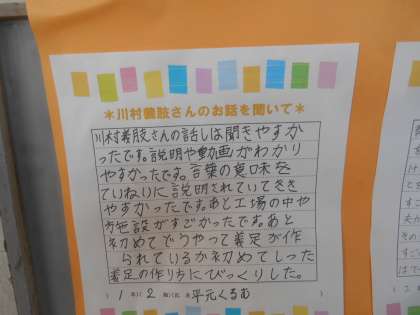 *川村義肢さんのお話を聞いて*
川村義肢さんの話しは聞きやすか
ったです。説明や動画がわかり
やすかったです。言葉の意味を
ていねいに説明されていてきき
やすかったです。あと工場の中や
施設がすごかったです。あと
初めてどうやって義足が作
られているか初めてしった
義足の作り方にびっくりした。
(1年(2